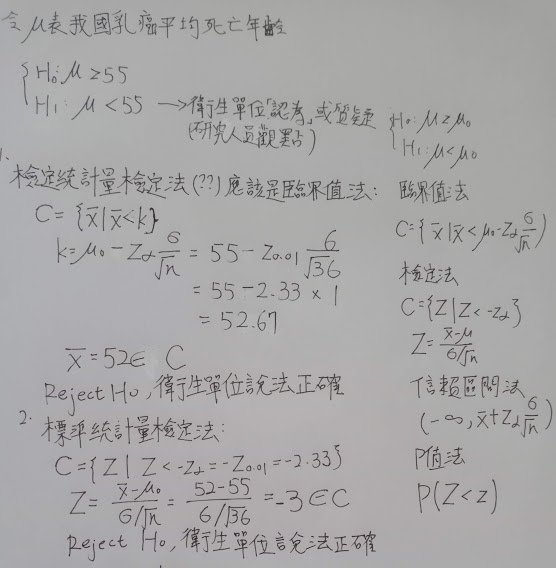 令μ表我國乳癌平均死亡年齡
H₀: μ ≥ 55
H₁: μ < 55 → 衛生單位「認為」或質疑
(研究人員觀點)
H₀: μ ≥ μ₀
H₁: μ < μ₀
1.
檢定統計量檢定法(??)應該是臨界值法:
C = {x̄|x̄<k}
k = μ₀ - Zα σ/√n = 55 - Z0.01 6/√36
= 55 - 2.33 × 1
= 52.67
x̄ = 52 ∈ C
Reject H₀, 衛生單位說法正確
2. 標準統計量檢定法:
C = {Z | Z < -Zα = -Z0.01 = -2.33}
Z = (x̄-μ₀)/(σ/√n) = (52-55)/(6/√36) = -3 ∈ C
Reject H₀, 衛生單位說法正確
臨界值法
C = {x̄|x̄ < μ₀ - Zα σ/√n}
檢定法
C = {Z|Z < -Zα}
Z = (x̄-μ)/(σ/√n)
信賴區間法
(-∞, x̄+Zα σ/√n)
P值法
P(Z<z)